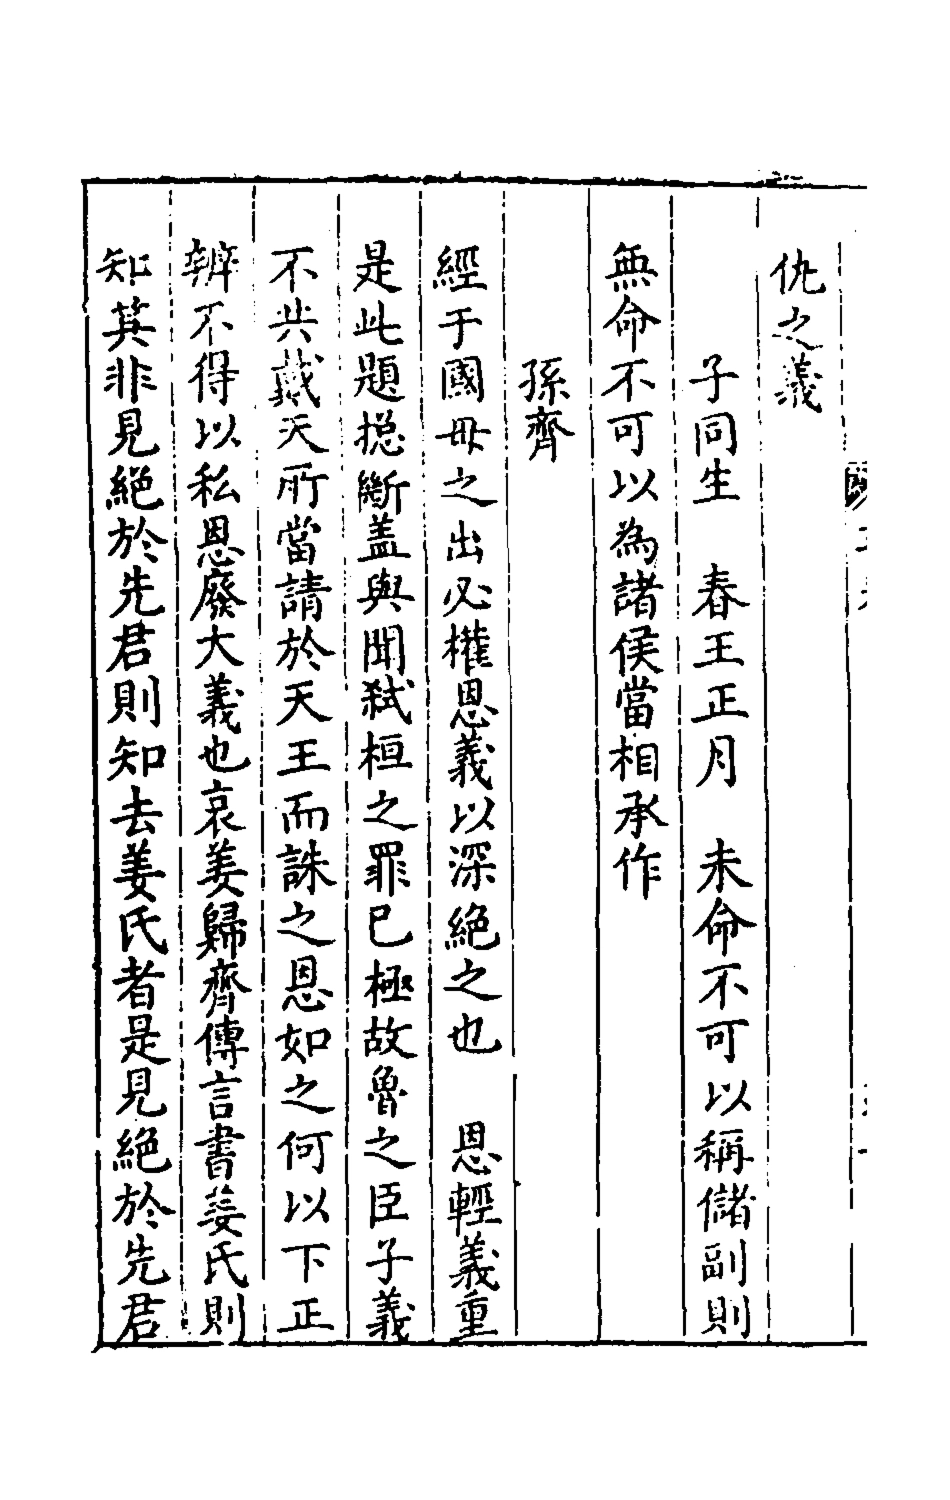 仇之義
子同生　春王正月　未命不可以稱儲副則
無命不可以為諸侯當相承作
孫齊
經于國母之出必權恩義以深絕之也　恩輕義重
是此題揔斷盖與聞弑桓之罪已極故魯之臣子義
不共戴天所當請於天王而誅之恩如之何以下正
辨不得以私恩廢大義也哀姜歸齊傳言書姜氏則
知其非見絕於先君則知去姜氏者是見絕於先君